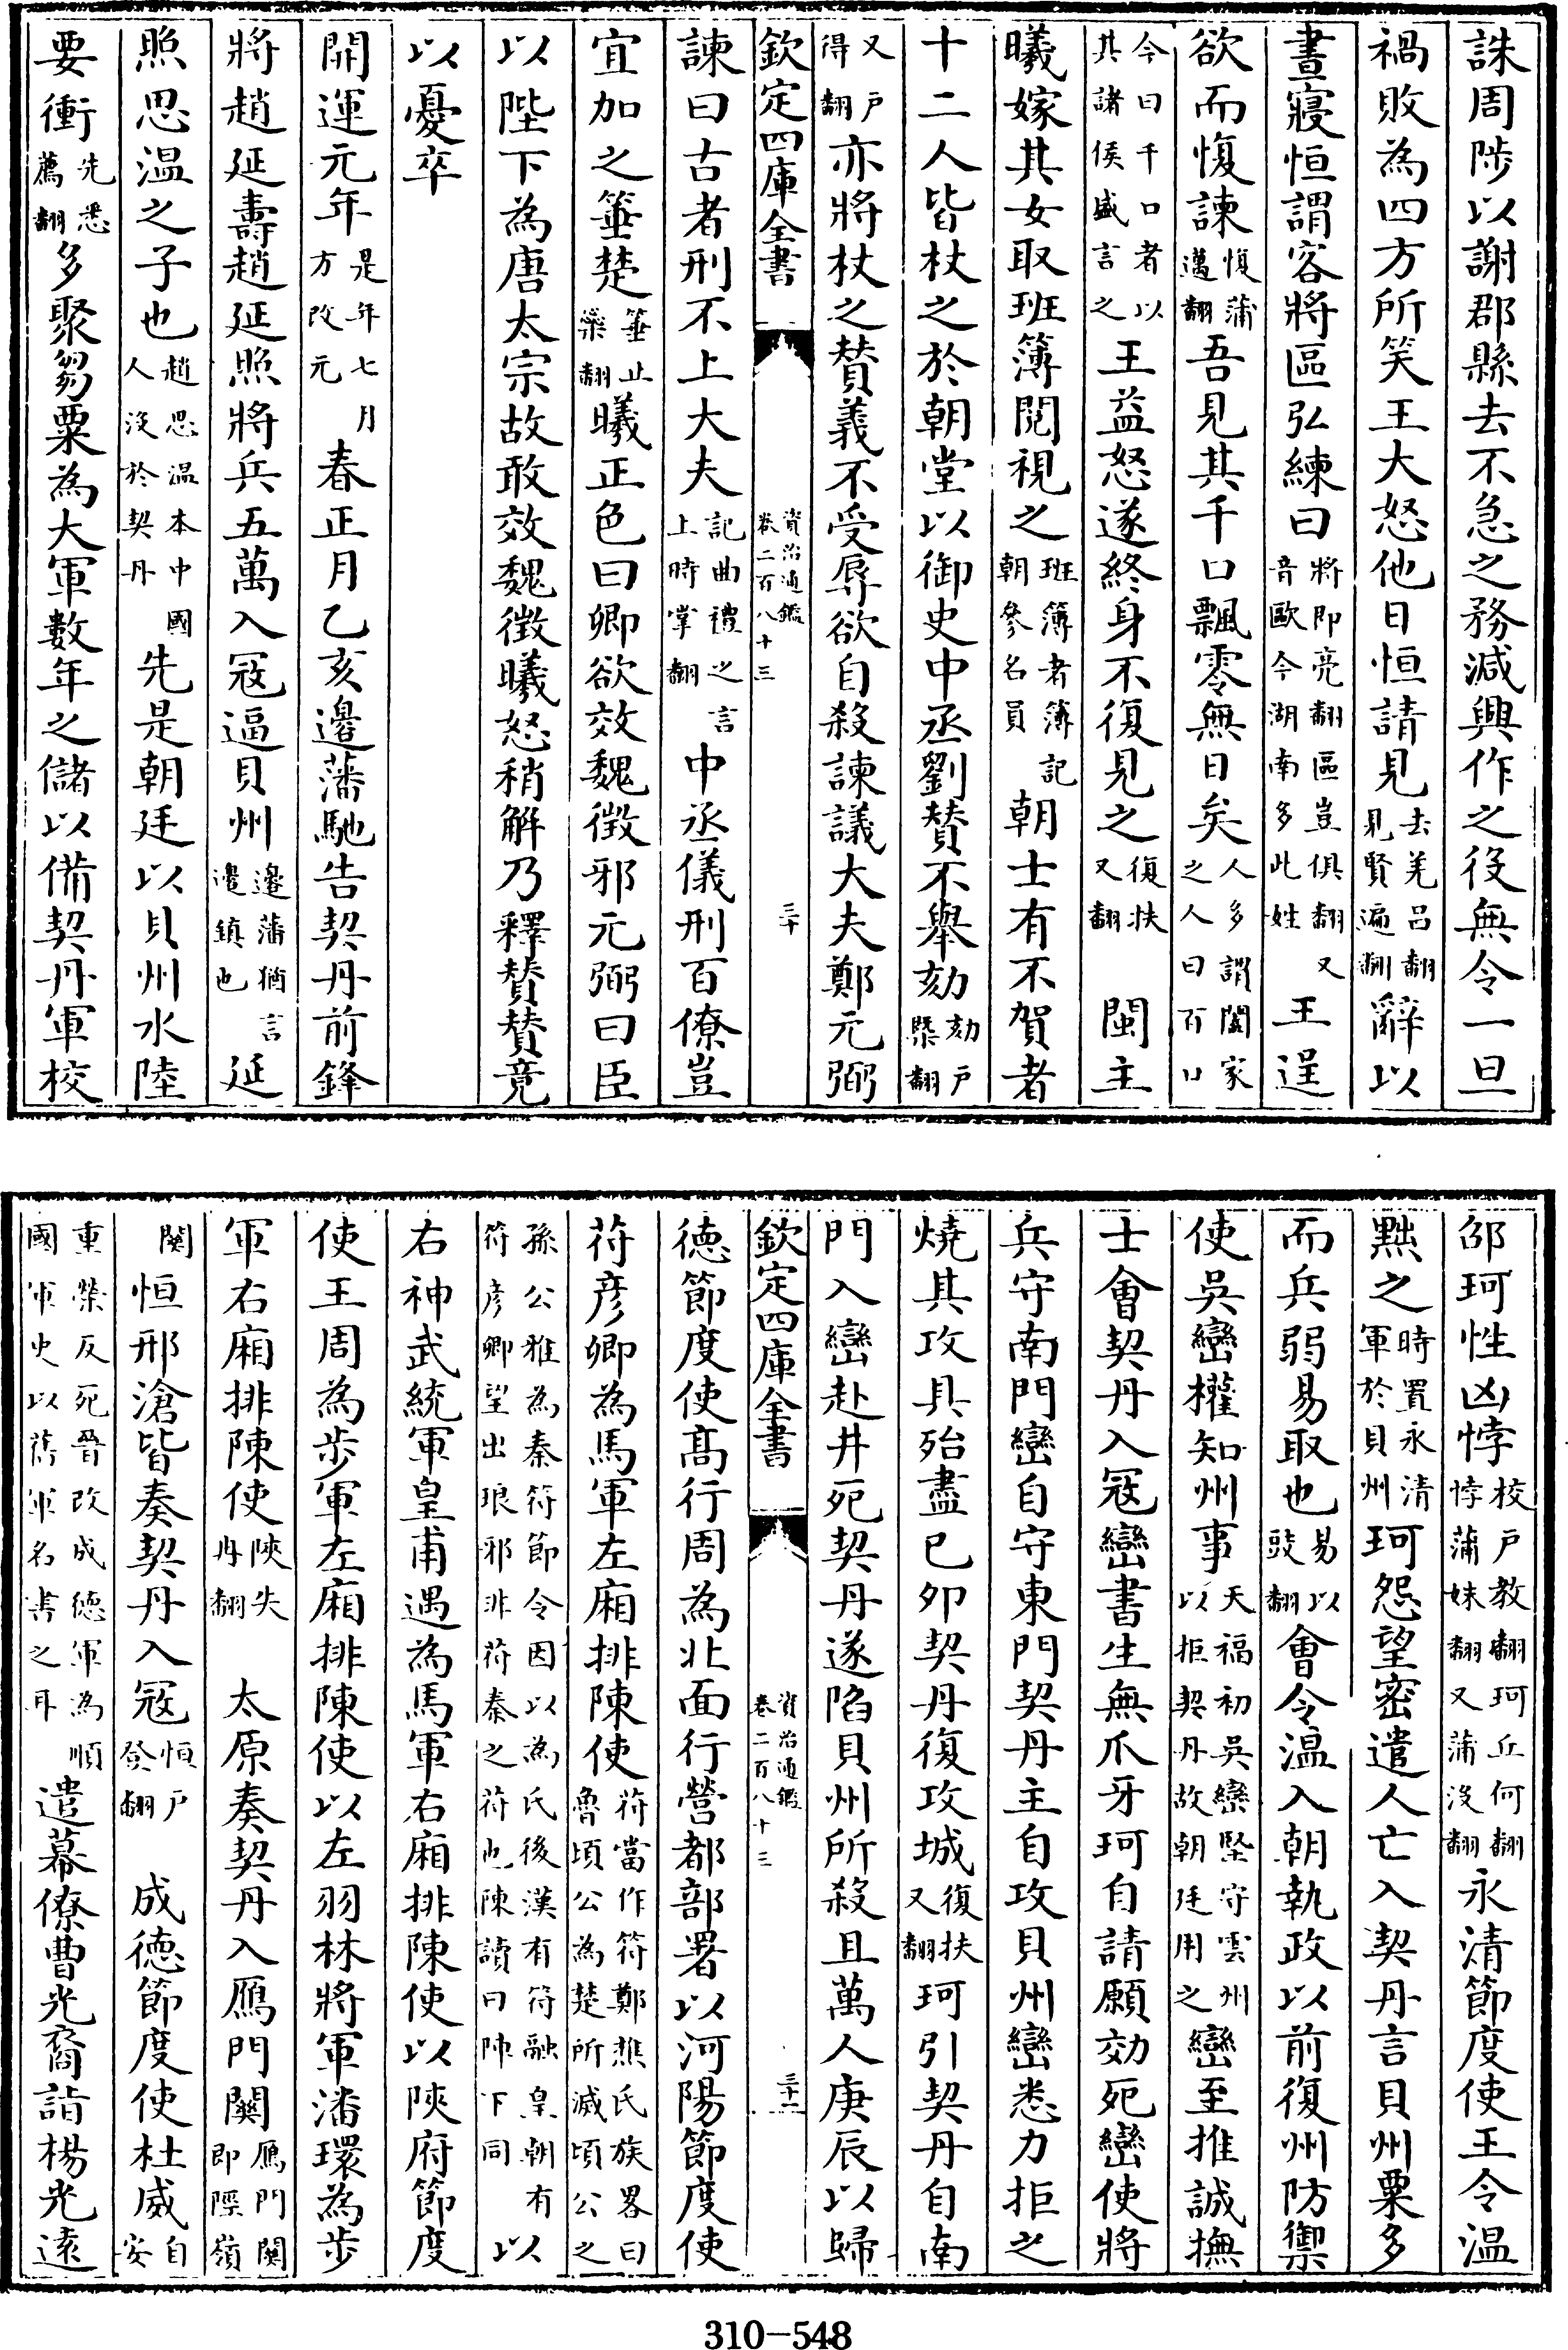 誅周陟以謝郡縣去不急之務減興作之役無令一旦
禍敗為四方所笑王大怒他日恒請見去羌呂翻見賢遍翻辭以
晝寢恒謂客將區弘練曰將即亮翻區豈俱翻又音歐今湖南多此姓王逞
欲而愎諫愎蒲邁翻吾見其千口飄零無日矣人多謂闔家之人曰百口
今曰千口者以其諸侯盛言之王益怒遂終身不復見之復扶又翻 閩主
曦嫁其女取班簿閱視之班簿者簿記朝參名員朝士有不賀者
十二人皆杖之於朝堂以御史中丞劉贊不舉劾劾戶槩翻
又戶得翻亦將杖之贊義不受辱欲自殺諫議大夫鄭元弼
欽定四庫全書 資治通鑑卷二百八十三 三十
諫曰古者刑不上大夫記曲禮之言上時掌翻中丞儀刑百僚豈
宜加之箠楚箠止橤翻曦正色曰卿欲效魏徵邪元弼曰臣
以陛下為唐太宗故敢效魏徵曦怒稍解乃釋贊贊竟
以憂卒
開運元年是年七月方改元春正月乙亥邊藩馳告契丹前鋒
將趙延壽趙延照將兵五萬入冦逼貝州邊藩猶言邊鎮也延
照思温之子也趙思温本中國人沒於契丹先是朝廷以貝州水陸
要衝先悉薦翻多聚芻粟為大軍數年之儲以備契丹軍校
邵珂性凶悖校戶教翻珂丘何翻悖蒲妹翻又蒲沒翻永清節度使王令温
黜之時置永清軍於貝州珂怨望密遣人亡入契丹言貝州粟多
而兵弱易取也易以豉翻會令温入朝執政以前復州防禦
使吳巒權知州事天福初吳巒堅守雲州以拒契丹故朝廷用之巒至推誠撫
士會契丹入冦巒書生無爪牙珂自請願効死巒使將
兵守南門巒自守東門契丹主自攻貝州巒悉力拒之
燒其攻具殆盡己卯契丹復攻城復扶又翻珂引契丹自南
門入巒赴井死契丹遂陷貝州所殺且萬人庚辰以歸
欽定四庫全書 資治通鑑卷二百八十三 三十一
德節度使髙行周為北面行營都部署以河陽節度使
苻彦卿為馬軍左廂排陳使苻當作符鄭樵氏族畧曰魯頃公為楚所滅頃公之
孫公雅為秦符節令因以為氏後漢有符融皇朝有符彦卿望出琅邪非苻秦之苻也陳讀曰陣下同以
右神武統軍皇甫遇為馬軍右廂排陳使以陜府節度
使王周為步軍左廂排陳使以左羽林將軍潘環為步
軍右廂排陳使陜失冉翻 太原奏契丹入鴈門關鴈門關即陘嶺
關恒邢滄皆奏契丹入冦恒戶登翻 成德節度使杜威自安
重榮反死晉改成德軍為順國軍史以舊軍名書之耳遣幕僚曹光裔詣楊光逺
310-548